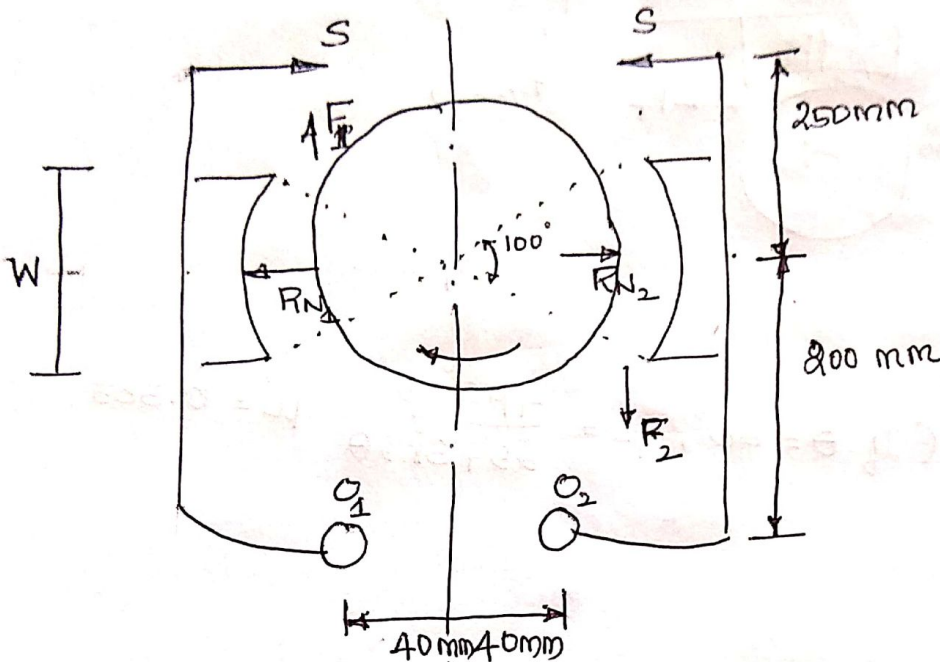 S S
F1
250mm
W
100°
RN1
RN2
200 mm
F2
O1 O2
40mm40mm